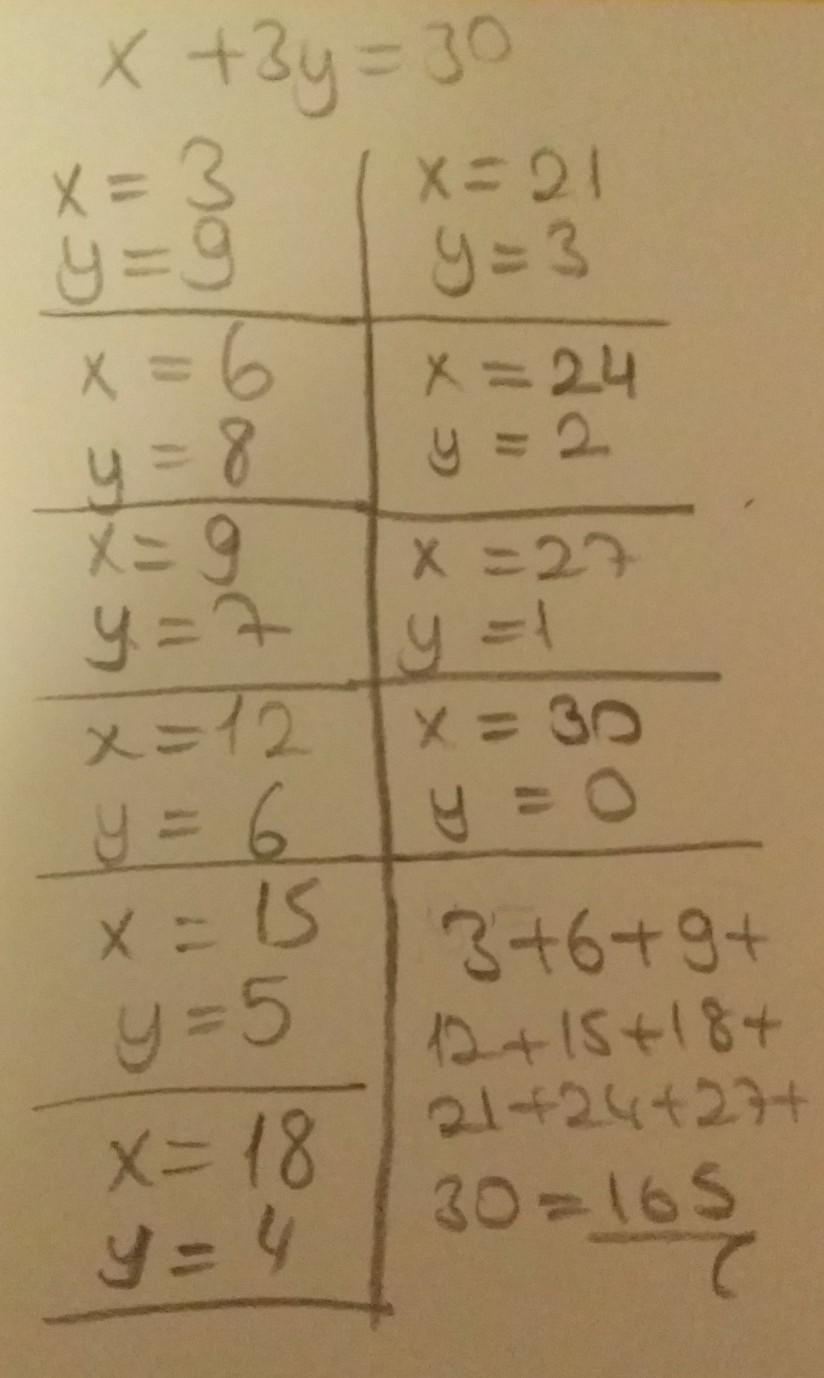 x + 3y = 30
x = 3
y = 9
x = 6
y = 8
x = 9
y = 7
x = 12
y = 6
x = 15
y = 5
x = 18
y = 4
x = 21
y = 3
x = 24
y = 2
x = 27
y = 1
x = 30
y = 0
3+6+9+
12+15+18+
21+24+27+
30 = 165